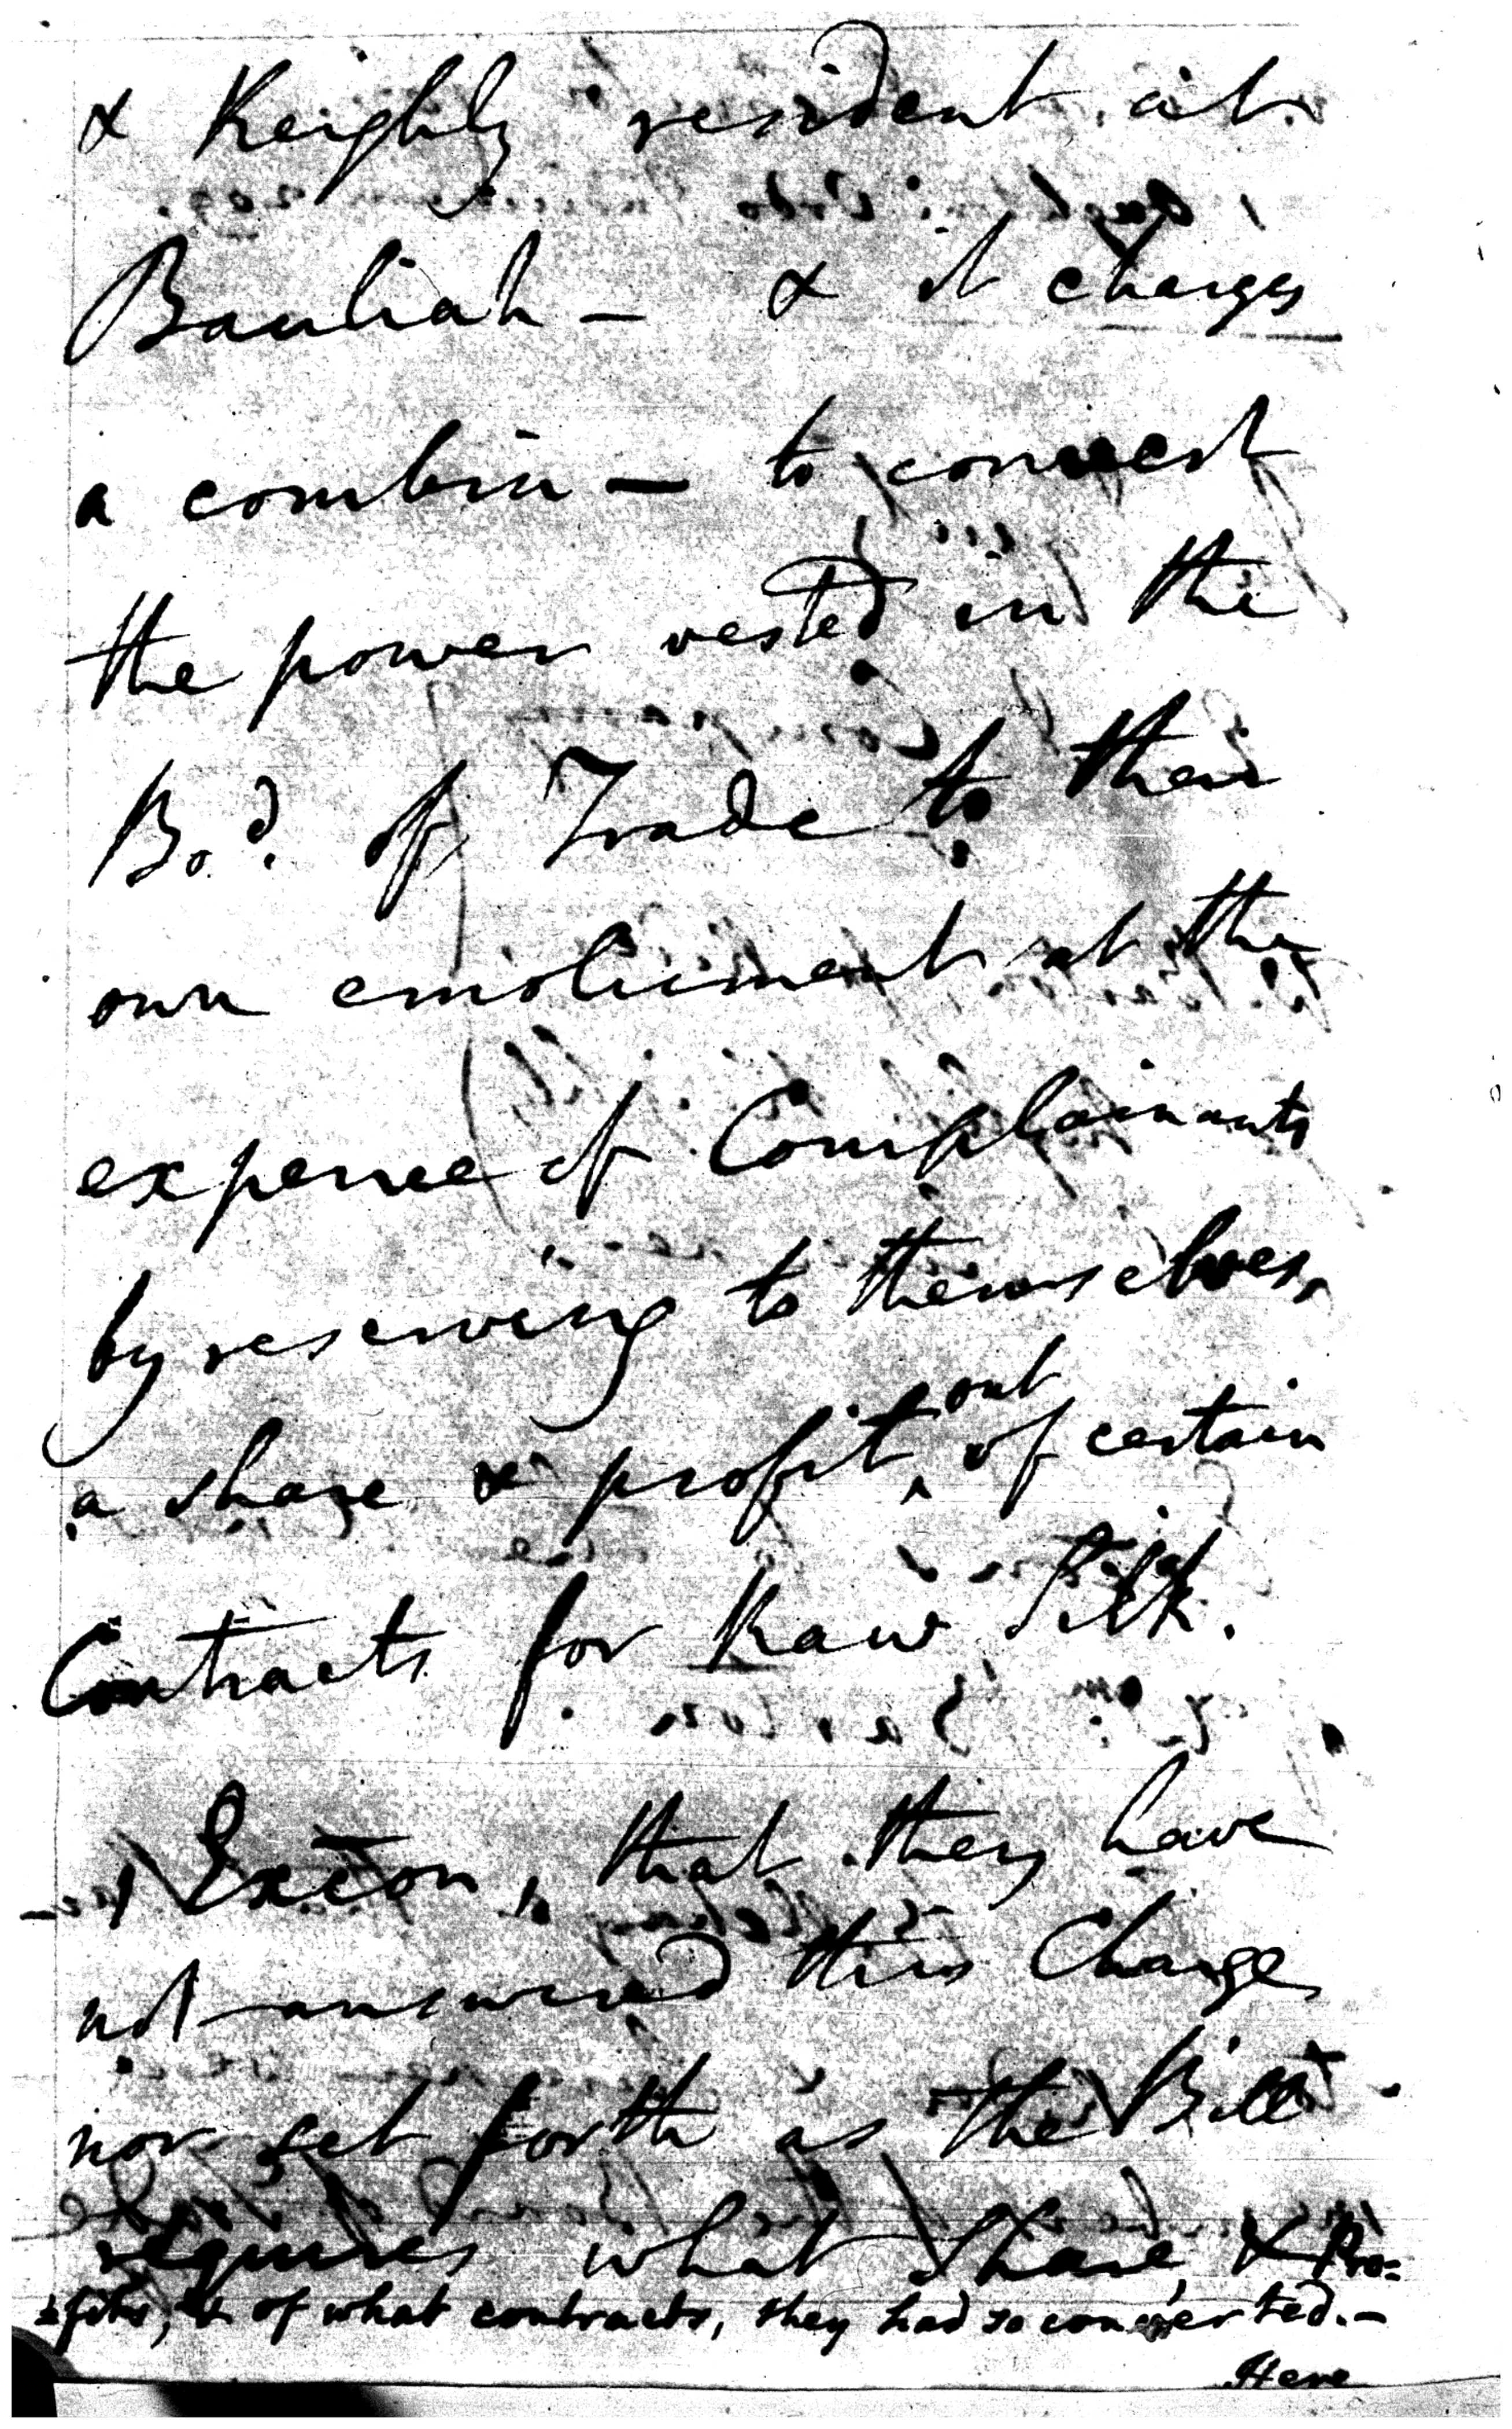 & Keighly resident at
Bauliah – & it charges
a combin – to convert
the power vested in the
Bod. of Trade to their
own emolument at the
expence of Complainants
by reserving to themselves,
a share & profit out of certain
Contracts for Raw Silk.
Excēon, that they have
not answered this Charge
nor set forth as the Bill
requires what Share, & Pro=
=fits, & of what contracts, they had so converted.–
Here